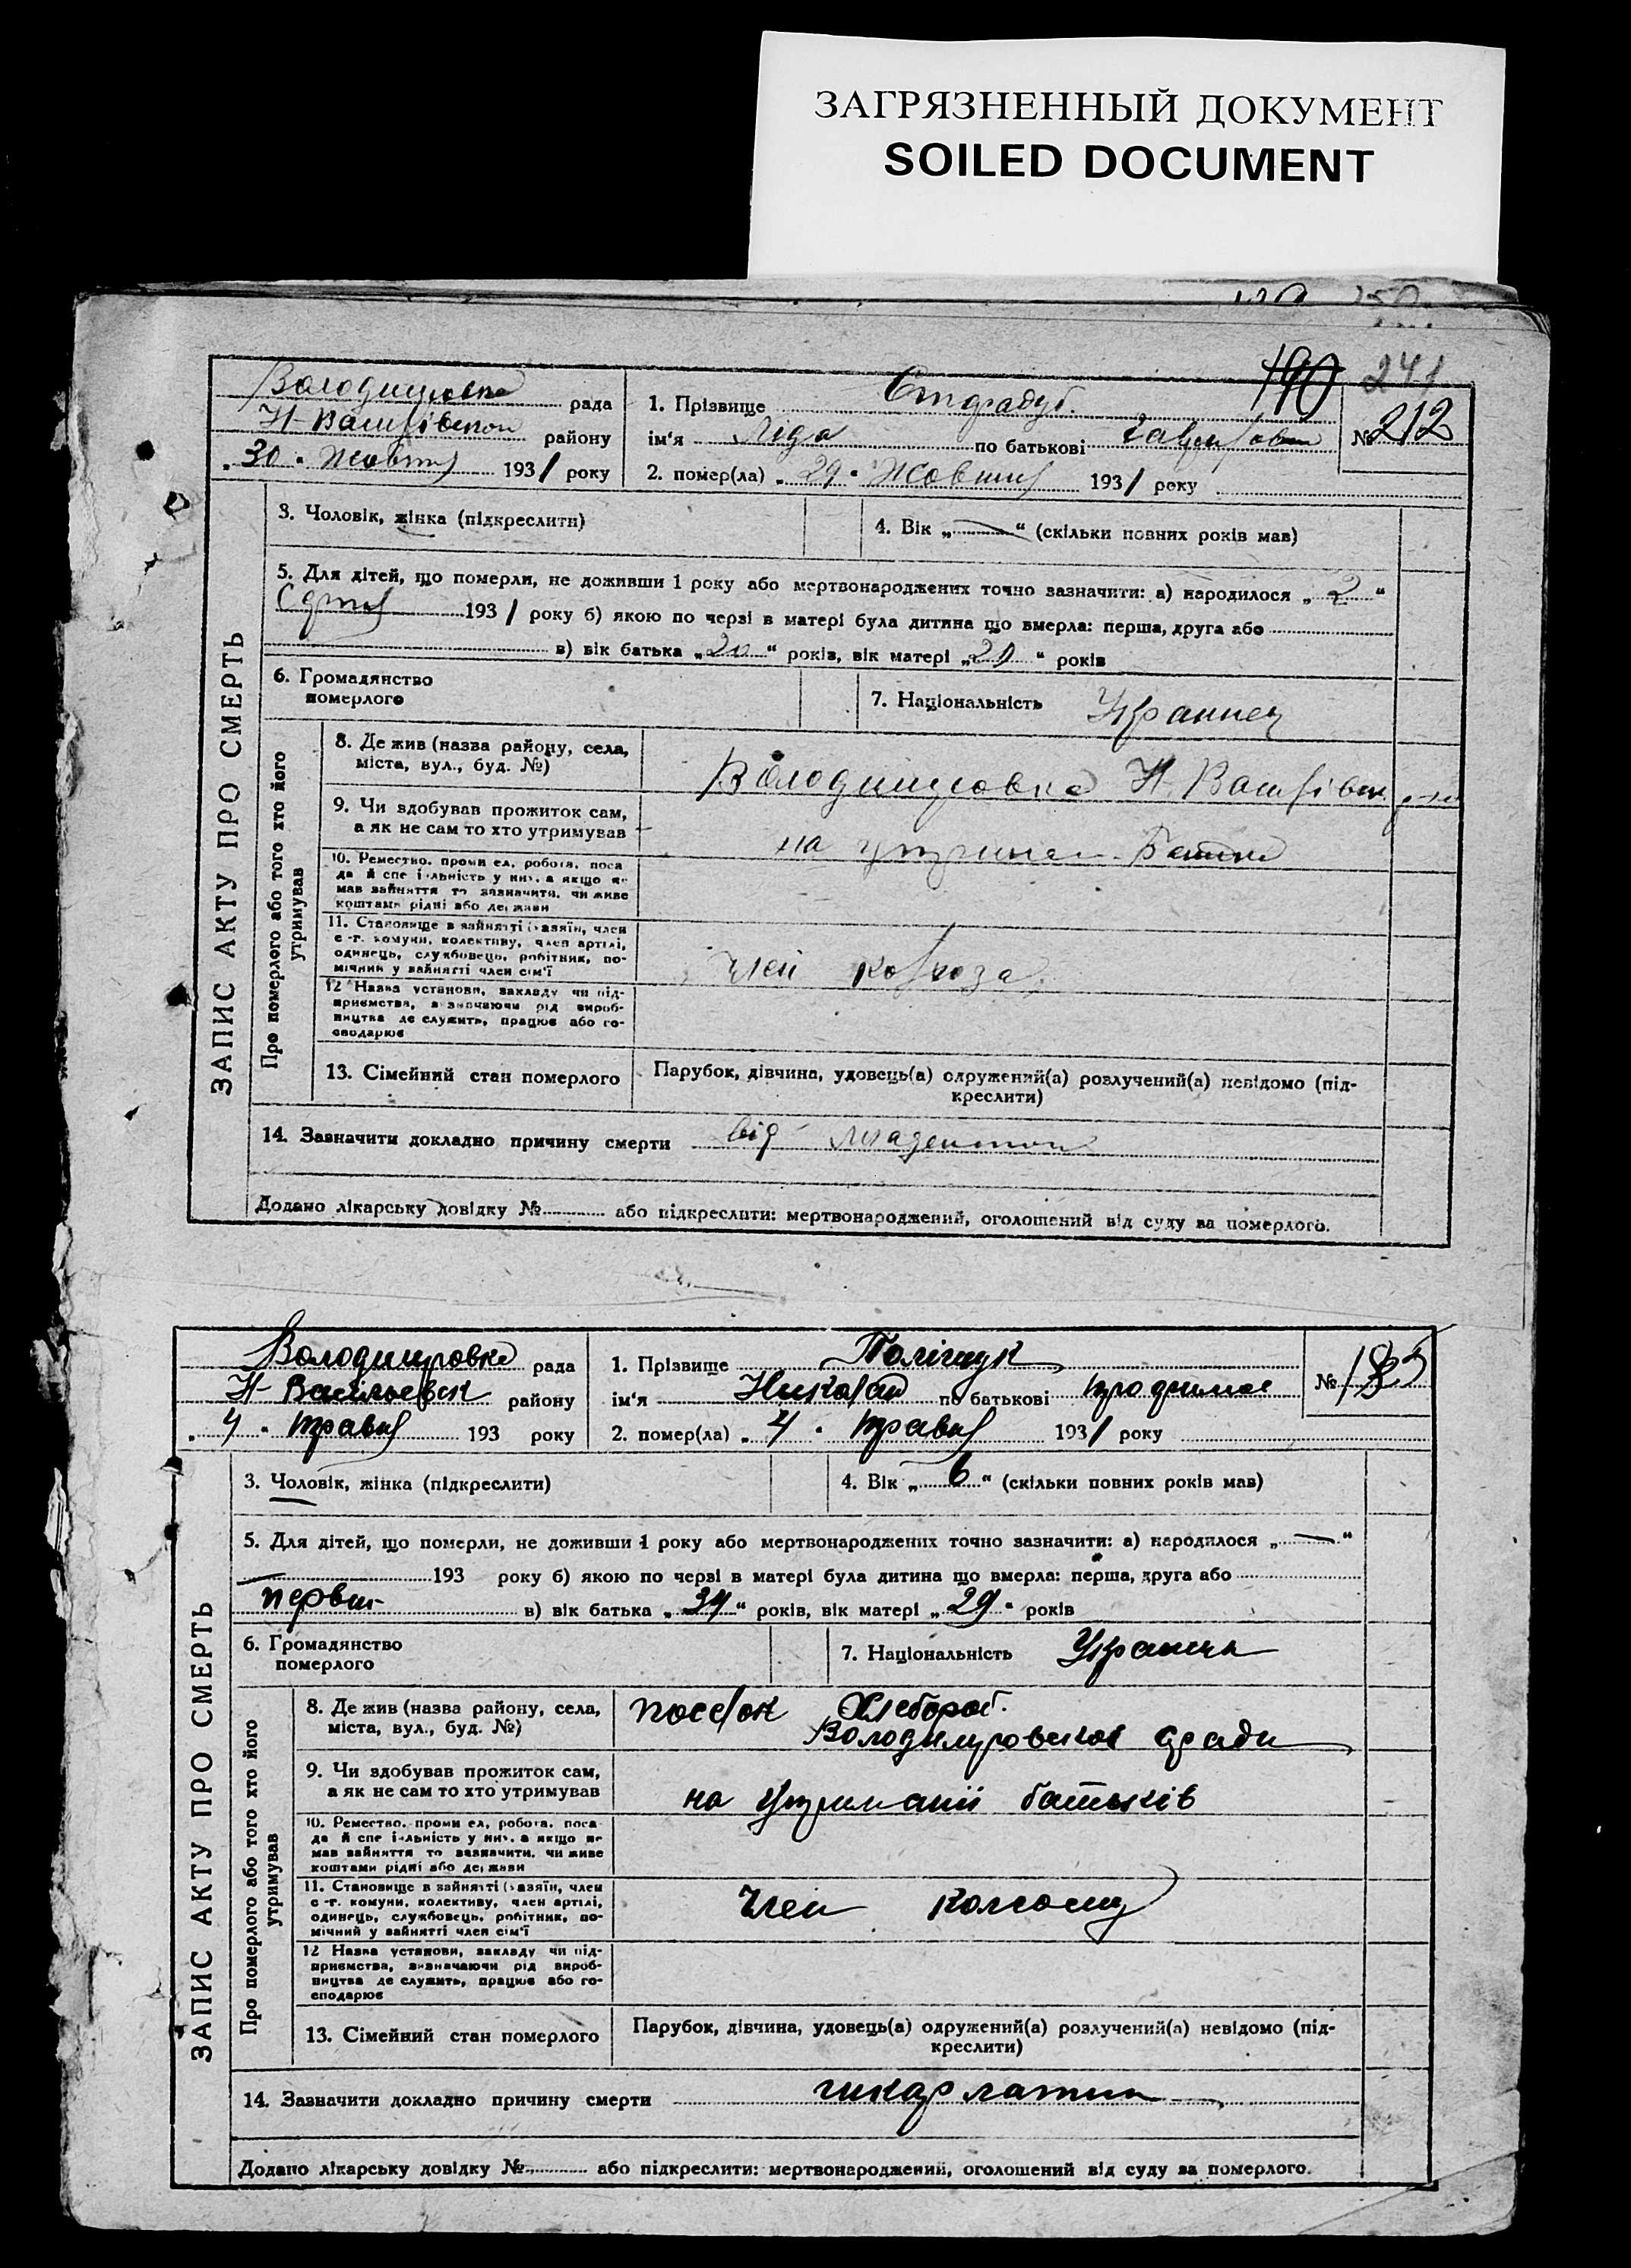 ЗАГРЯЗНЕННЫЙ ДОКУМЕНТ
SOILED DOCUMENT
190 241
рада
району
30 1931 року
1. Прізвище
ім'я Ліда по батькові
2. помер(ла) „ 29 " 1931 року
№ 212
ЗАПИС АКТУ ПРО СМЕРТЬ
3. Чоловік, жінка (підкреслити)
4. Вік „ — " (скільки повних років мав)
5. Для дітей, що померли, не доживши 1 року або мертвонароджених точно зазначити: а) народилося „ 2 "
1931 року б) якою по черзі в матері була дитина що вмерла: перша, друга або
в) вік батька „ 20 " років, вік матері „ " років
6. Громадянство
померлого
7. Національність
Про померлого або того хто його
утримував
8. Де жив (назва району, села,
міста, вул., буд. №)
9. Чи здобував прожиток сам,
а як не сам то хто утримував
на
10. Ремество, роботa, поса
да й
мав зайняття то зазначити, чи живе
коштами рідні або держави
11. Становище в зайнятті (хазяїн, член
с.-г. комуни, колективу, член артілі,
одинець, службовець, робітник, по-
мічний у зайнятті член сім'ї
член колхоза
12 Назва установи, закладу чи під-
приємства, визначаючи рід вироб-
ництва де служить, працює або го-
сподарює
13. Сімейний стан померлого
Парубок, дівчина, удовець(а) одружений(а) розлучений(а) невідомо (під-
креслити)
14. Зазначити докладно причину смерти від
Додано лікарську довідку № або підкреслити: мертвонароджений, оголошений від суду за померлого.
Володимировка рада
району
4 " травня 193 року
1. Прізвище Поліщук
ім'я Николай по батькові
2. помер(ла) „ 4 " травня 1931 року
№
ЗАПИС АКТУ ПРО СМЕРТЬ
3. Чоловік, жінка (підкреслити)
4. Вік „ 6 " (скільки повних років мав)
5. Для дітей, що померли, не доживши 1 року або мертвонароджених точно зазначити: а) народилося „ — "
193 року б) якою по черзі в матері була дитина що вмерла: перша, друга або
в) вік батька „ 34 " років, вік матері „ 29 " років
6. Громадянство
померлого
7. Національність
Про померлого або того хто його
утримував
8. Де жив (назва району, села,
міста, вул., буд. №)
поселок Хлебороб.
9. Чи здобував прожиток сам,
а як не сам то хто утримував
на утриманії батьків
10. Ремество, роботa, поса
да й
мав зайняття то зазначити, чи живе
коштами рідні або держави
11. Становище в зайнятті (хазяїн, член
с.-г. комуни, колективу, член артілі,
одинець, службовець, робітник, по-
мічний у зайнятті член сім'ї
член колгоспу
12 Назва установи, закладу чи під-
приємства, визначаючи рід вироб-
ництва де служить, працює або го-
сподарює
13. Сімейний стан померлого
Парубок, дівчина, удовець(а) одружений(а) розлучений(а) невідомо (під-
креслити)
14. Зазначити докладно причину смерти
Додано лікарську довідку № або підкреслити: мертвонароджений, оголошений від суду за померлого.